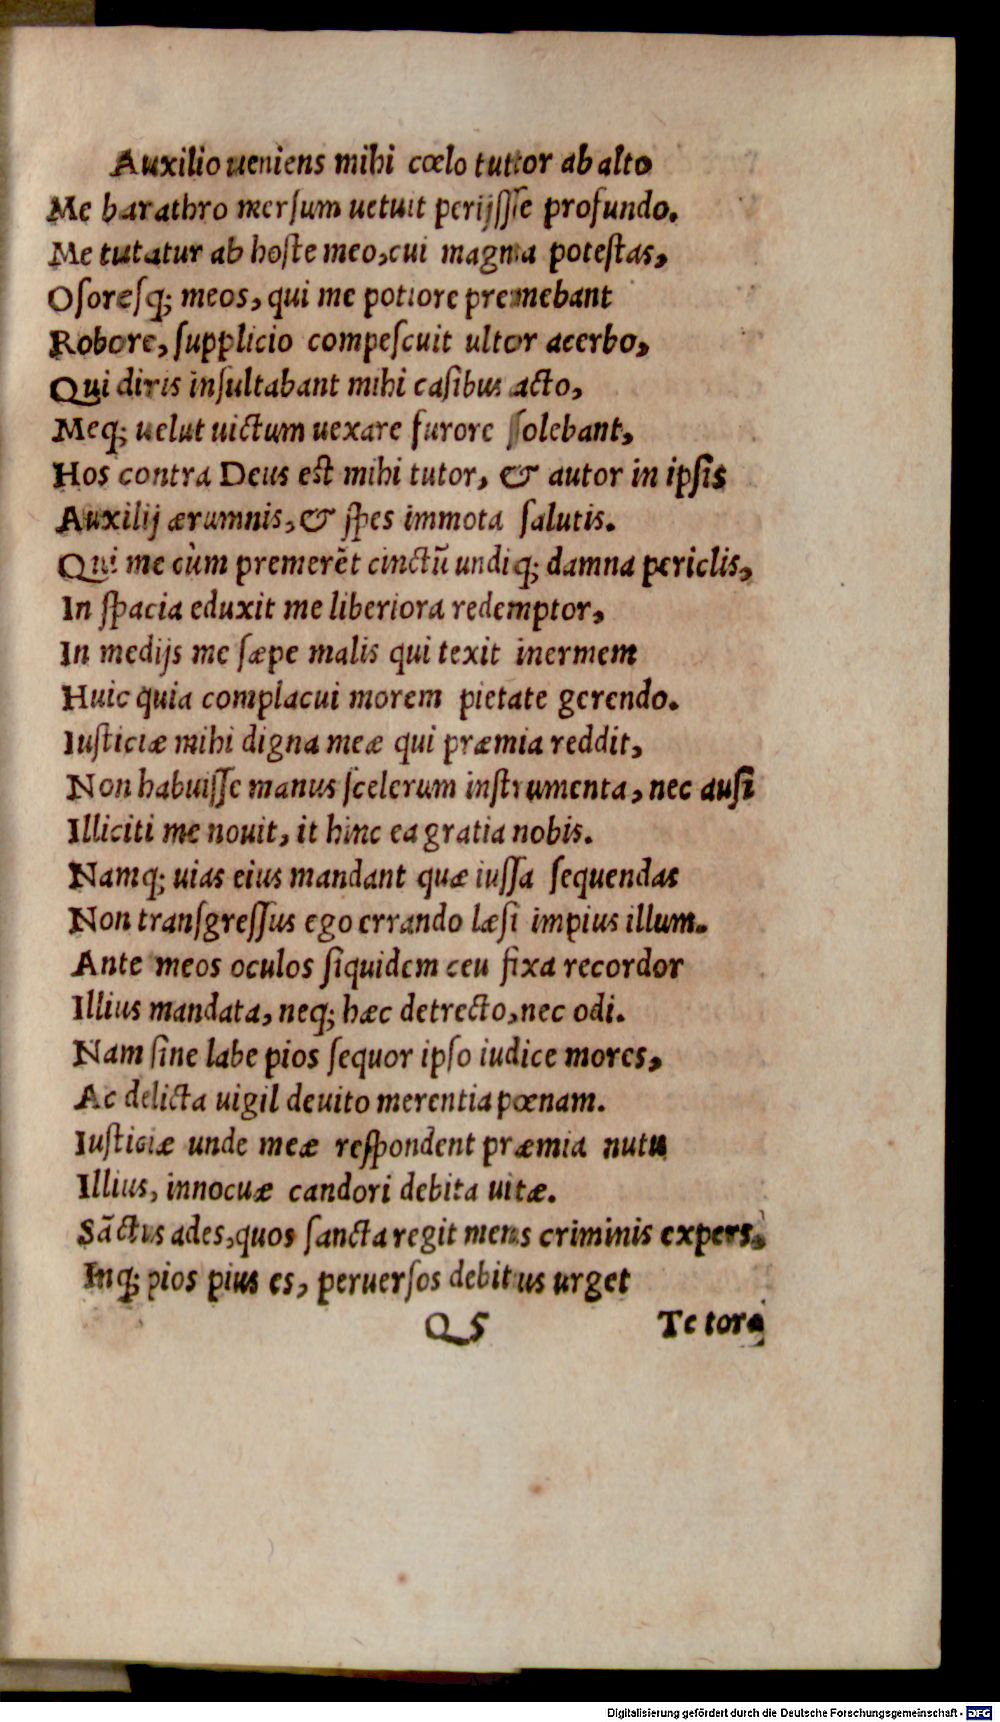 Auxilio ueniens mihi cœlo tuttor ab alto
Me barathro mersum uetuit perijsſſe profundo.
Me tutatur ab hoſte meo, cui magna poteſtas,
Oſoresq; meos, qui me potiore premebant
Robore, ſupplicio compeſcuit ultor acerbo,
Qui diris inſultabant mihi caſibus acto,
Meq; uelut uictum uexare furore ſolebant,
Hos contra Deus eſt mihi tutor, & autor in ipſis
Auxilij ærumnis, & ſpes immota ſalutis.
Qui me cùm premerẽt cinctũ undiq; damna periclis,
In ſpacia eduxit me liberiora redemptor,
In medijs me ſæpe malis qui texit inermem
Huic quia complacui morem pietate gerendo.
Iuſticiæ mihi digna meæ qui præmia reddit,
Non habuiſſe manus ſcelerum inſtrumenta, nec auſi
Illiciti me nouit, it hinc ea gratia nobis.
Namq; uias eius mandant quæ iuſſa ſequendas
Non tranſgreſſus ego errando læſi impius illum.
Ante meos oculos ſiquidem ceu fixa recordor
Illius mandata, neq; hæc detrecto, nec odi.
Nam ſine labe pios ſequor ipſo iudice mores,
Ac delicta uigil deuito merentia pœnam.
Iuſticiæ unde meæ reſpondent præmia nutu
Illius, innocuæ candori debita uitæ.
Sãctus ades, quos ſancta regit mens criminis expers,
Inq; pios pius es, peruerſos debitus urget
Q 5 Te tora
Digitalisierung gefördert durch die Deutsche Forschungsgemeinschaft - DFG